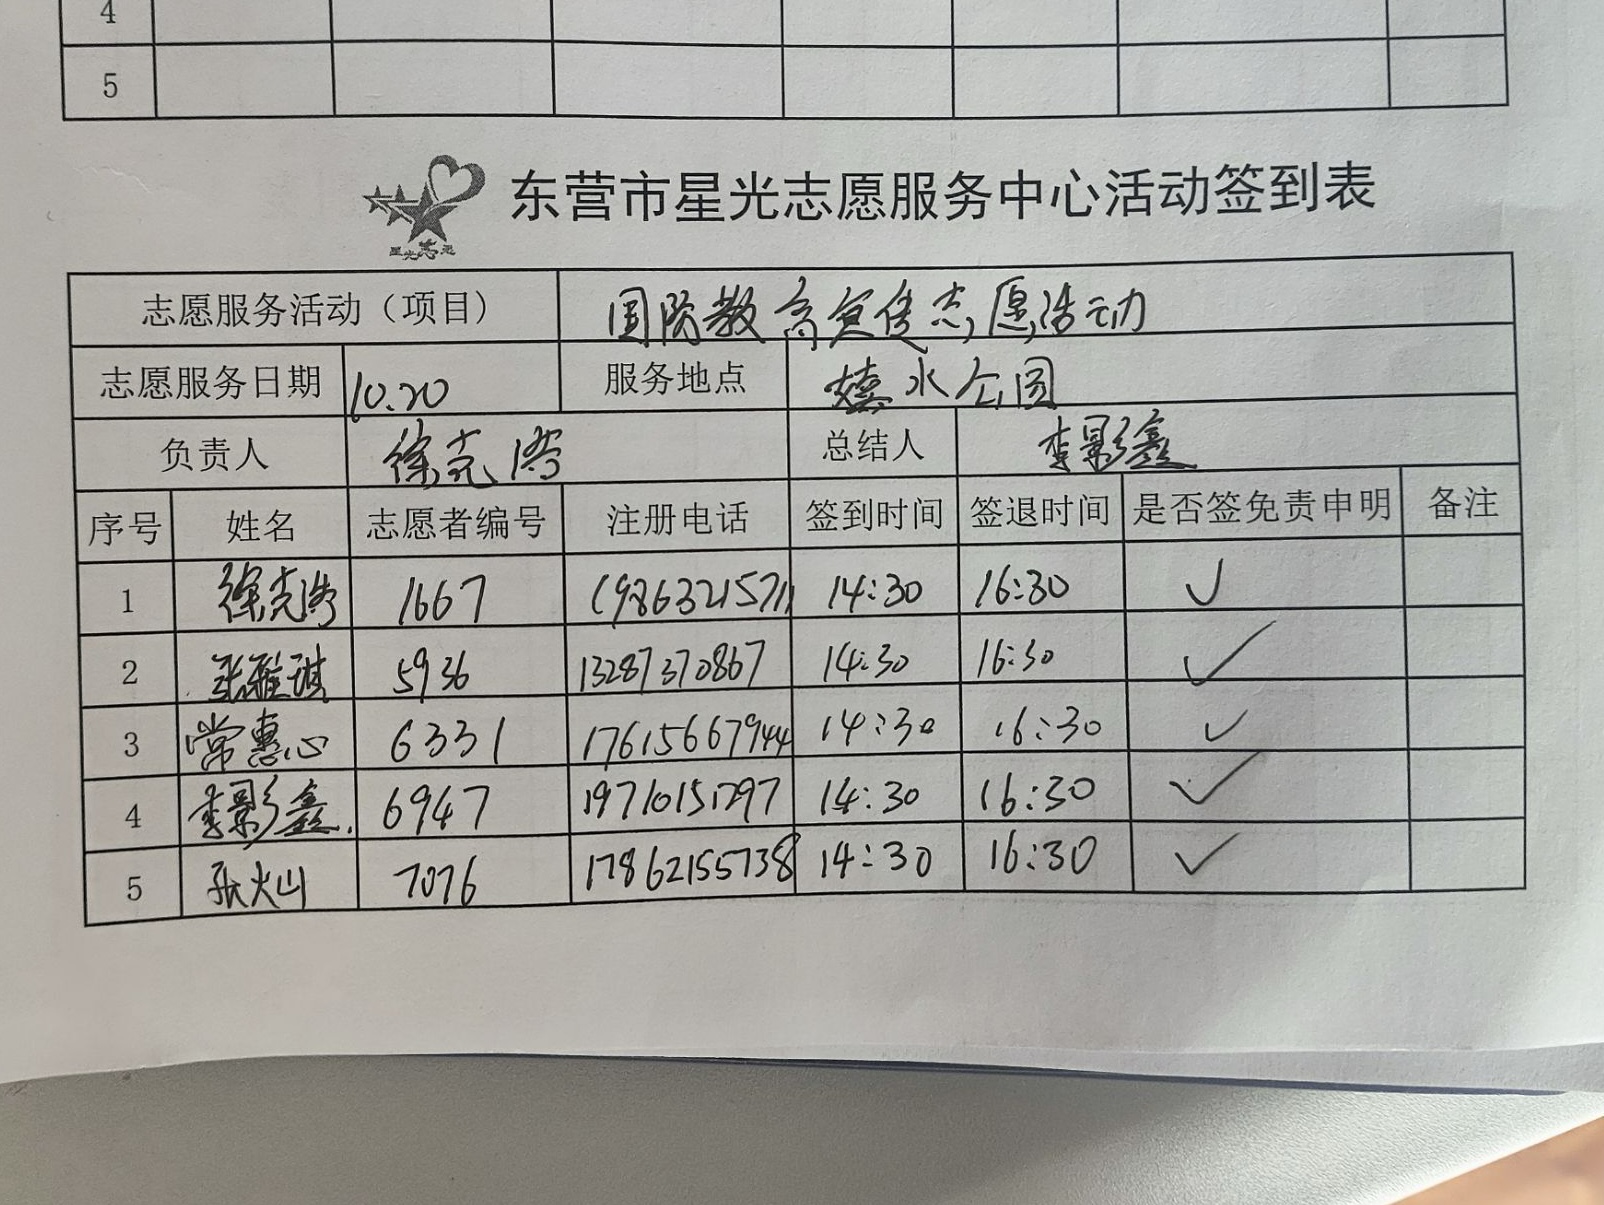 4
5
星光志愿
东营市星光志愿服务中心活动签到表
志愿服务活动（项目） 国防教育宣传志愿活动
志愿服务日期 10.20 服务地点 嬉水公园
负责人 徐克浩 总结人 李影鑫
序号 姓名 志愿者编号 注册电话 签到时间 签退时间 是否签免责申明 备注
1 徐克浩 1667 19863215711 14:30 16:30 ✓
2 张雅琪 5936 13287370867 14:30 16:30 ✓
3 常惠心 6331 17615667944 14:30 16:30 ✓
4 李影鑫. 6947 19710151797 14:30 16:30 ✓
5 张火山 7076 17862155738 14:30 16:30 ✓